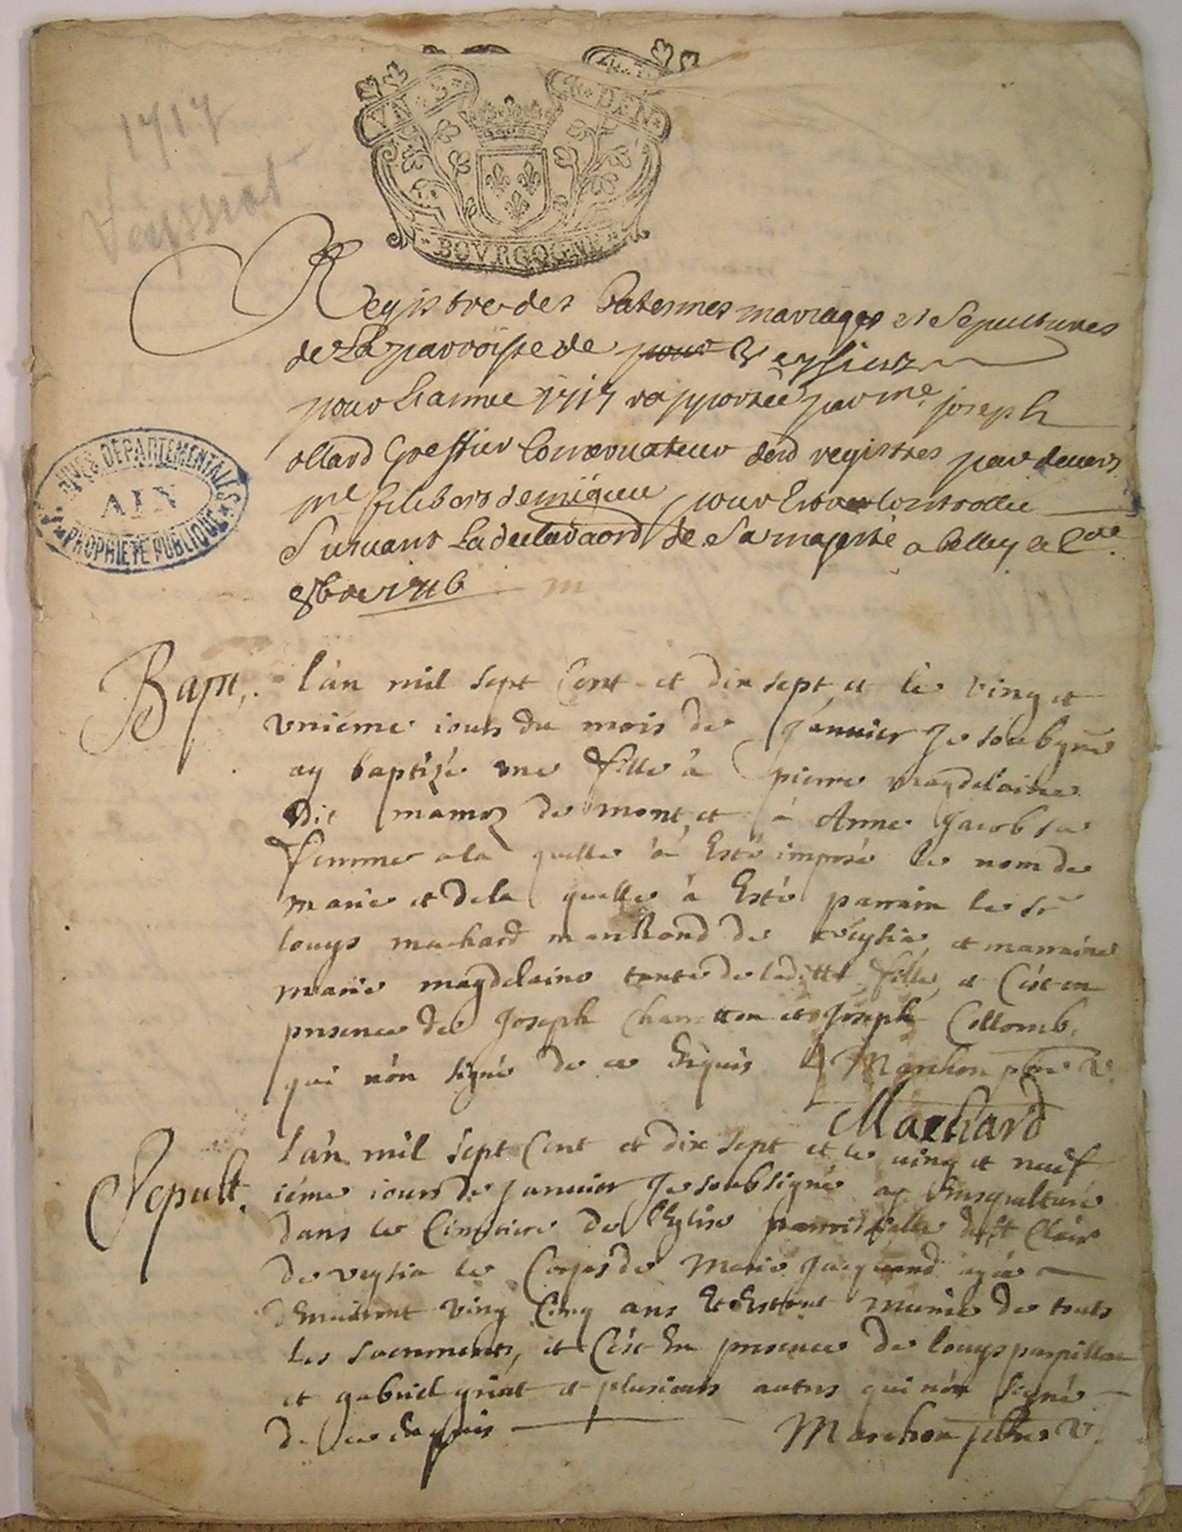 1717
Veyssiat
VN . S
DEN
BOVRGOGNE
Registre des Batesmes mariages et Sepultures
de La parroisse de pour Veyssieu
pour Lannee 1717 par me. joseph
ollard Greffier Conservateur desd registres par devers
me filibert demigieu pour Controlleu
Suivant La declaraōn de Sa majesté a belley le
8bre 1716
ARCHIVES DEPARTEMENTALES
AIN
PROPRIÉTÉ PUBLIQUE
Bapt. l'an mil sept Cent et dix sept et le ving et
vniéme iours du mois de januier Je soubsgné
ay baptizé vne fille à pierre magdelaine
dit mamoz de mont et à Anne Jacob sa
femme a la quelle à Esté imposé le nom de
marie et de la quelle à Esté parrain le sr
louys machard marchand de veysia, et marraine
marie magdelaine tante de laditte fille, et C'ést en
presence de Joseph et Joseph Collomb,
qui n'on signé de ce Enquis Marchon pbre V.
Machard
Sepult. l'an mil sept Cent et dix sept et le uing et neuf
iéme iours de januier Je soubsigné ay Ensepulturé
dans le Cimetiere de l'Eglise parroissialle de St Clair
de veysia le Corps de Marie Jacquand agée
d'Enuiront ving Cinq ans Et Estant munie de touts
les sacrements, et C'ést En presence de louys papillon
et gabriel griat et plusieurs autres qui n'on signé
de ce Enquis Marchon pbre V.